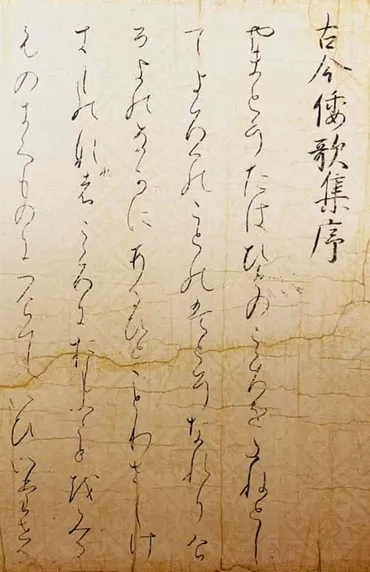 古今倭歌集序
やまとうたはひとのこゝろをたねとし
てよろつのことのはとそなれりけ
るよのなかにあるひとことわさしけ
きものなれはこゝろにおもふことをみる
ものきくものにつけていひいたせる